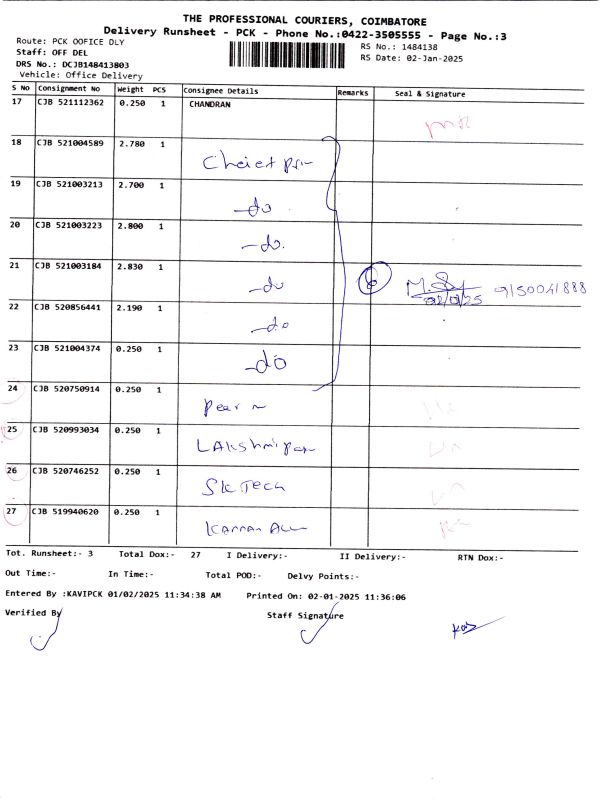 THE PROFESSIONAL COURIERS, COIMBATORE
Delivery Runsheet - PCK - Phone No.:0422-3505555 - Page No.:3
Route: PCK OOFICE DLY
RS No.: 1484138
Staff: OFF DEL
RS Date: 02-Jan-2025
DRS No.: DCJB148413803
Vehicle: Office Delivery
S No Consignment No Weight PCS Consignee Details Remarks Seal & Signature
17 CJB 521112362 0.250 1 CHANDRAN
18 CJB 521004589 2.780 1
19 CJB 521003213 2.700 1 -do
20 CJB 521003223 2.800 1 -do.
21 CJB 521003184 2.830 1 -do 6 02/01/25 9150041888
22 CJB 520856441 2.190 1 -do
23 CJB 521004374 0.250 1 -do
24 CJB 520750914 0.250 1
25 CJB 520993034 0.250 1
26 CJB 520746252 0.250 1 SK Tech
27 CJB 519940620 0.250 1
Tot. Runsheet:- 3 Total Dox:- 27 I Delivery:- II Delivery:- RTN Dox:-
Out Time:- In Time:- Total POD:- Delvy Points:-
Entered By :KAVIPCK 01/02/2025 11:34:38 AM Printed On: 02-01-2025 11:36:06
Verified By Staff Signature